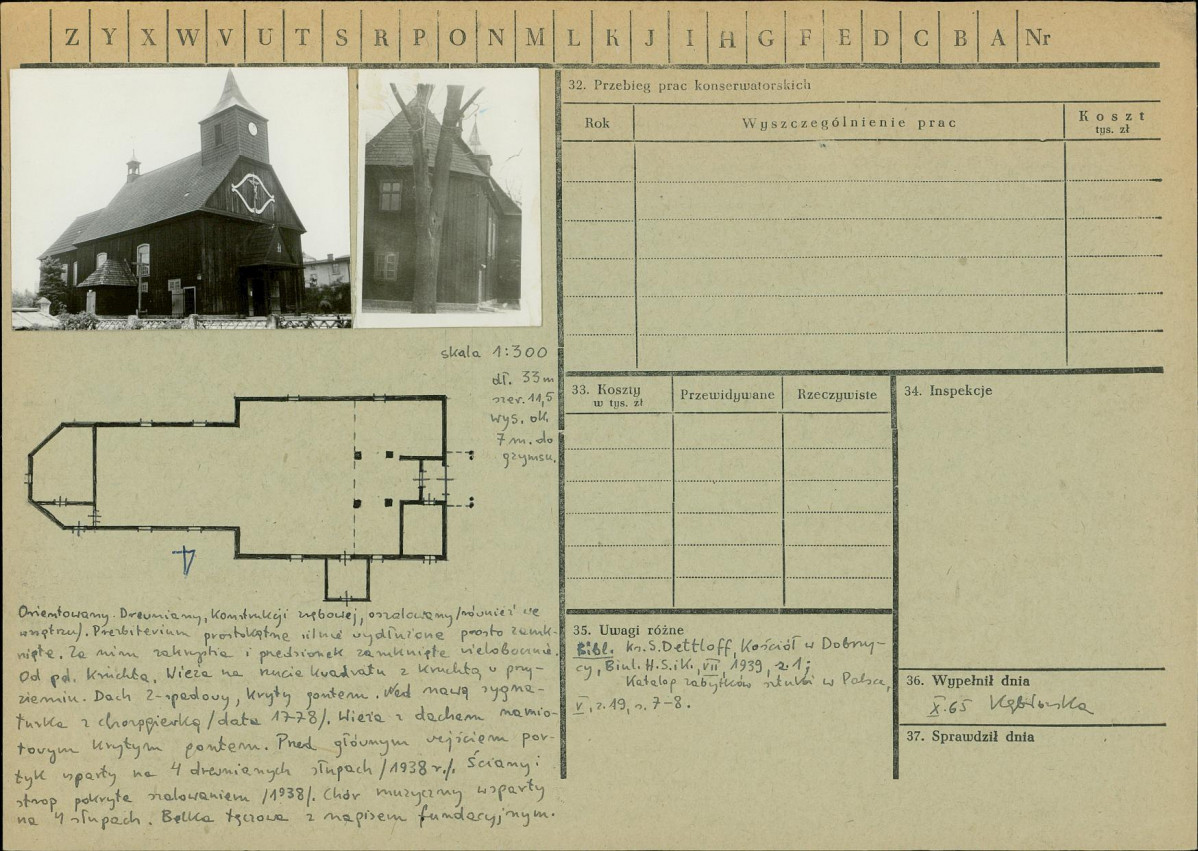 Z Y X W V U T S R P O N M L K J I H G F E D C B A Nr
skala 1:300
dł. 33 m
szer. 11,5
wys. ok.
7 m. do
gzymsu.
Orientowany. Drewniany, konstrukcji zrębowej, oszalowany /również we
wnętrzu/. Prezbiterium prostokątne silnie wydłużone prosto zamk-
nięte. Za nim zakrystia i przedsionek zamknięte wielobocznie.
Od pd. kruchta. Wieża na rzucie kwadratu z kruchtą w przy-
ziemiu. Dach 2-spadowy, kryty gontem. Nad nawą sygna-
turka z chorągiewką /data 1778/. Wieża z dachem namio-
towym krytym gontem. Przed głównym wejściem por-
tyk wsparty na 4 drewnianych słupach /1938 r./. Ściany i
strop pokryte szalowaniem /1938/. Chór muzyczny wsparty
na 4 słupach. Belka tęczowa z napisem fundacyjnym.
32. Przebieg prac konserwatorskich
Rok Wyszczególnienie prac Koszt
tys. zł
33. Koszty
w tys. zł
Przewidywane Rzeczywiste
34. Inspekcje
35. Uwagi różne
Bibl. ks. S. Dettloff, Kościół w Dobrzy-
cy, Biul. H.S.iK., VII, 1939, z 1;
Katalog zabytków sztuki w Polsce,
V, z. 19, s. 7-8.
36. Wypełnił dnia
X.65 Kębłowska
37. Sprawdził dnia